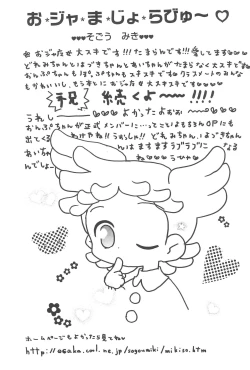 お★ジャ★ま★じょ★らびゅ〜♡
♥♥♥そこう みき♥♥♥
★おジャ魔女大スキです!!!たまらんです!!!愛してます
どれみちゃんとはづきちゃんとあいちゃんがたまらなく大スキで
おんぷちゃんもぽっぷちゃんもスキスキです クラスメートのみんな
もかわいいし、もうホントにおジャ魔女大スキです
祝 続くよ〜〜!!!!
うれし〜 よかったよおお
おんぷちゃんが正式メンバーに…ってことはもちろんOPにも
出てくる わけやね!!うわっしゃ!! どれみちゃん、はづきちゃん
あいちゃん はますますラブラブにな
るんでしょ
ホームページもよかったら見てね♥
http://osaka.cool.ne.jp/sogoumiki/mikiso.htm